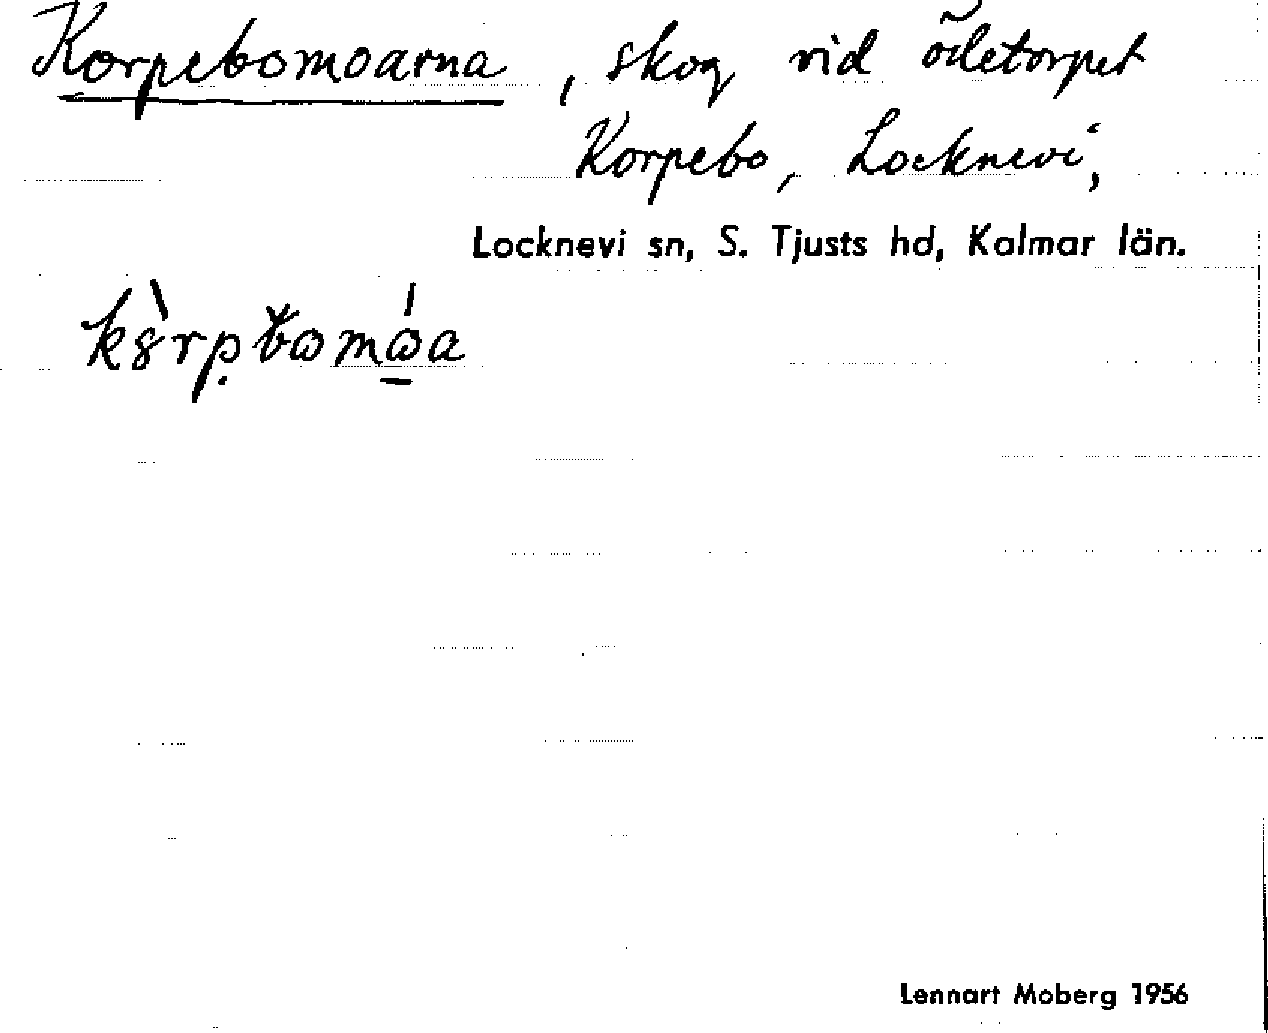 Korpebomoarna, skog vid ödetorpet
Korpebo, Locknevi,
Locknevi sn, S. Tjusts hd, Kalmar län.
Lennart Moberg 1956